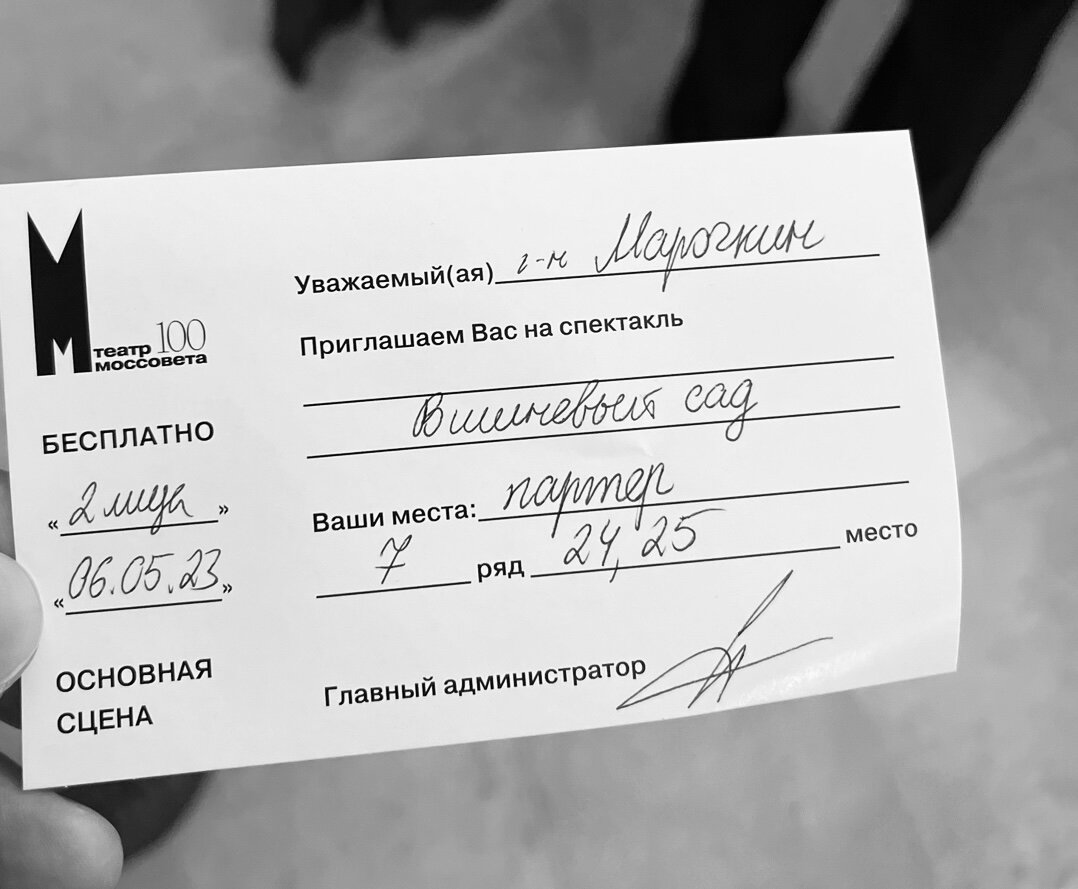 Уважаемый(ая) г-н Марочкин
Приглашаем Вас на спектакль
Вишневый сад
Ваши места: партер
7 ряд 24, 25 место
Главный администратор
М
театр 100
моссовета
БЕСПЛАТНО
«2 лица»
«06.05.23»
ОСНОВНАЯ
СЦЕНА